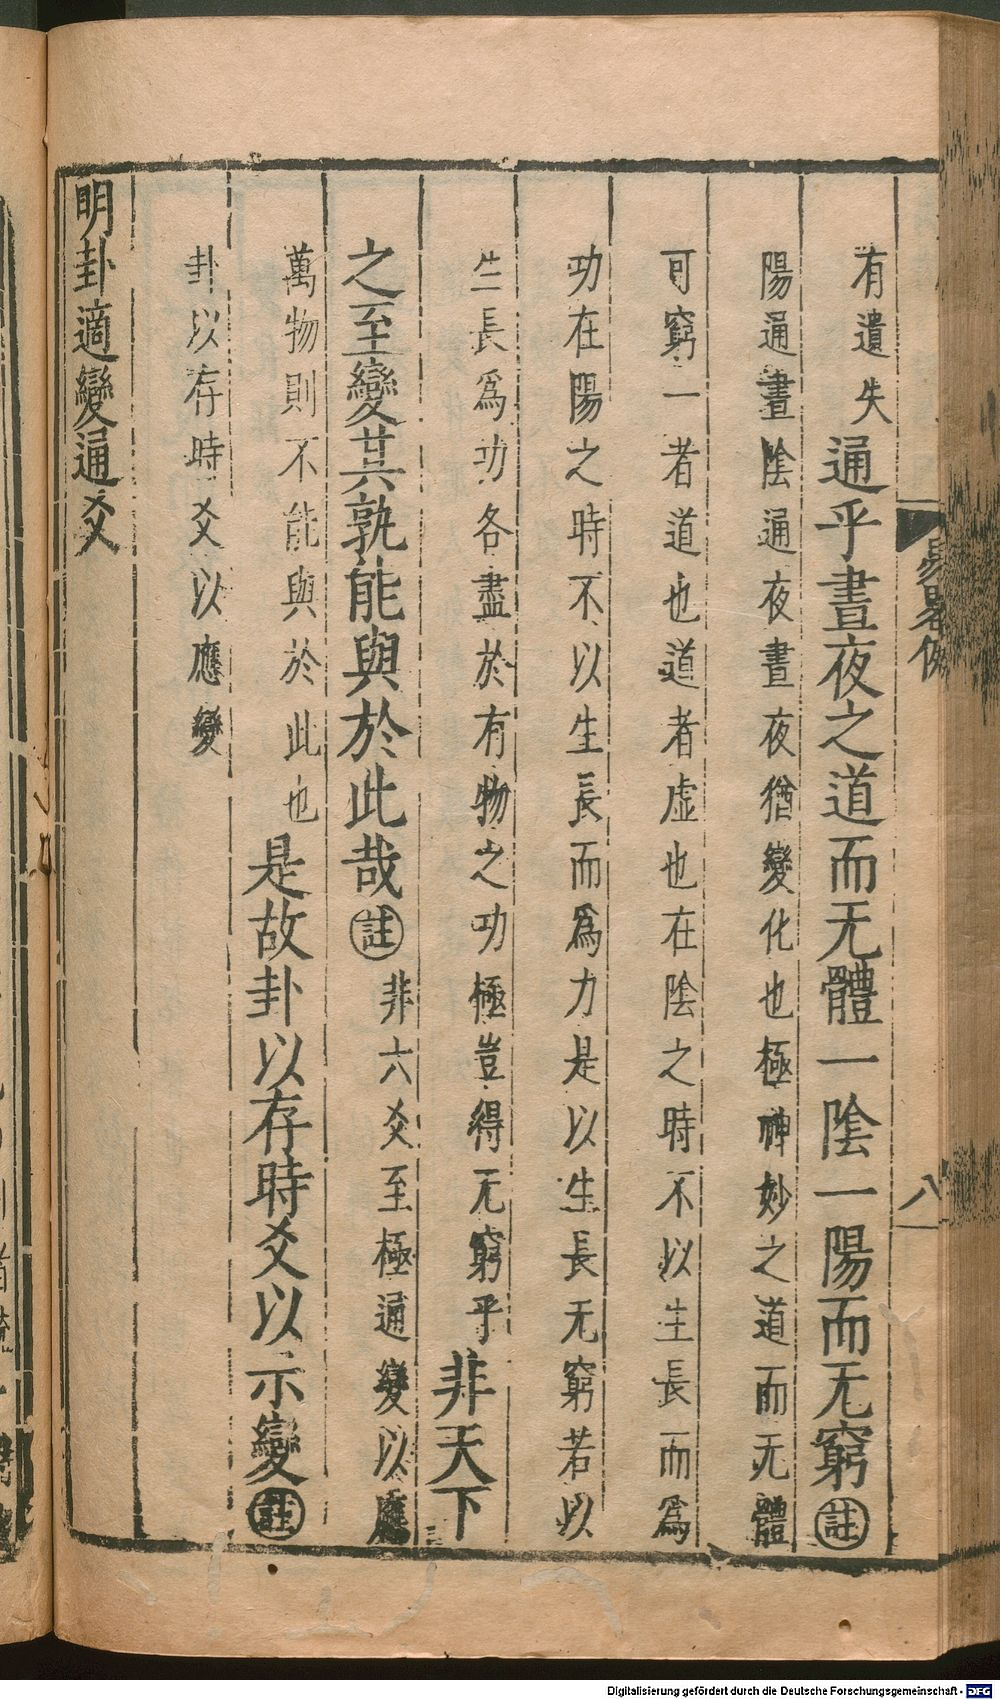 有遺失通乎晝夜之道而无體一陰一陽而无窮註
陽通晝陰通夜晝夜猶變化也極神妙之道而无體
可窮一者道也道者虛也在陰之時不以生長而爲
功在陽之時不以生長而爲力是以生長无窮若以
生長爲功各盡於有物之功極豈得无窮乎非天下
之至變其孰能與於此哉註非六爻至極通變以應
萬物則不能與於此也是故卦以存時爻以示變註
卦以存時爻以應變
明卦適變通爻
八
Digitalisierung gefördert durch die Deutsche Forschungsgemeinschaft - DFG